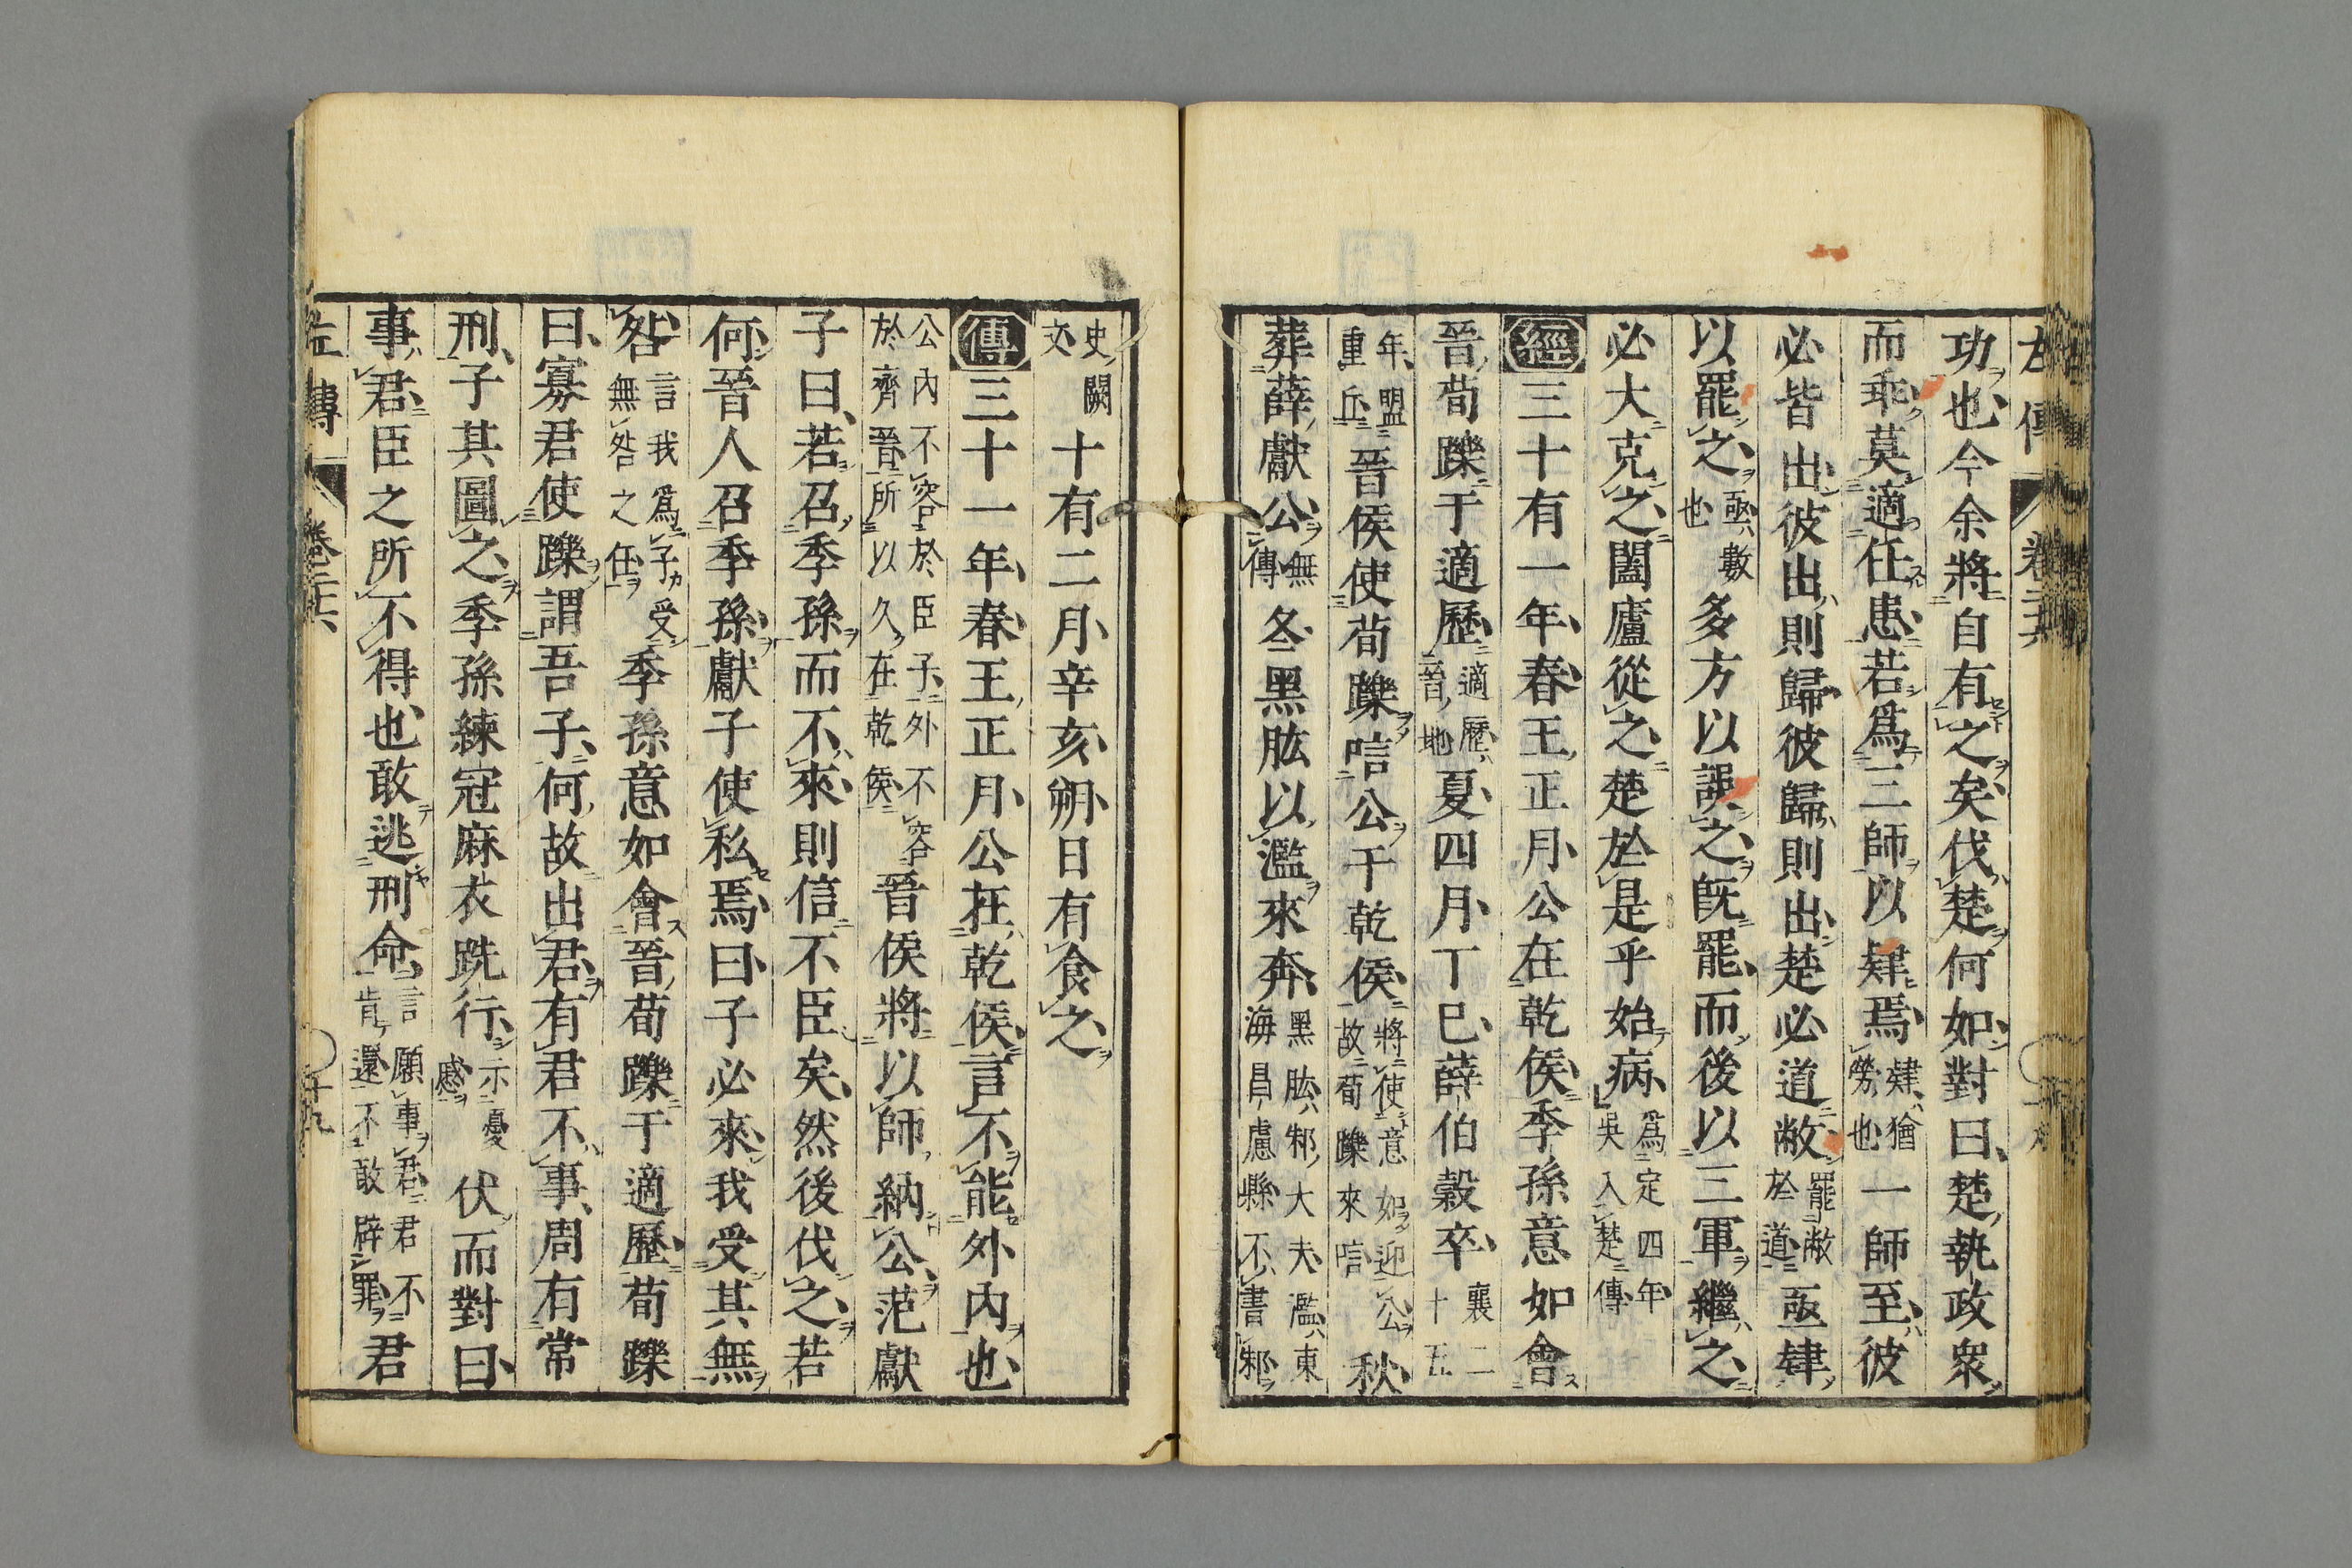 左傳 卷二十六
功也今余將自有之矣伐楚何如對曰楚執政衆
而乖莫適任患若爲三師以肄焉肄猶勞也一師至彼
必皆出彼出則歸彼歸則出楚必道敝罷敝於道亟肄
以罷之亟數也多方以誤之旣罷而後以三軍繼之
必大克之闔廬從之楚於是乎始病爲定四年吳入楚傳
經三十有一年春王正月公在乾侯季孫意如會
晉荀躒于適歷適歷晉地夏四月丁巳薛伯穀卒襄二十五
年盟重丘晉侯使荀躒唁公于乾侯將使意如迎公故荀躒來唁秋
葬薛獻公無傳冬黑肱以濫來奔黑肱邾大夫濫東海昌慮縣不書邾
史闕文十有二月辛亥朔日有食之
傳三十一年春王正月公在乾侯言不能外內也
公內不容於臣子外不容於齊晉所以久在乾侯晉侯將以師納公范獻
子曰若召季孫而不來則信不臣矣然後伐之若
何晉人召季孫獻子使私焉曰子必來我受其無
咎言我爲子受無咎之任季孫意如會晉荀躒于適歷荀躒
曰寡君使躒謂吾子何故出君有君不事周有常
刑子其圖之季孫練冠麻衣跣行示憂慼伏而對曰
事君臣之所不得也敢逃刑命言願事君君不肯還不敢辟罪君
左傳 卷二十六 十九